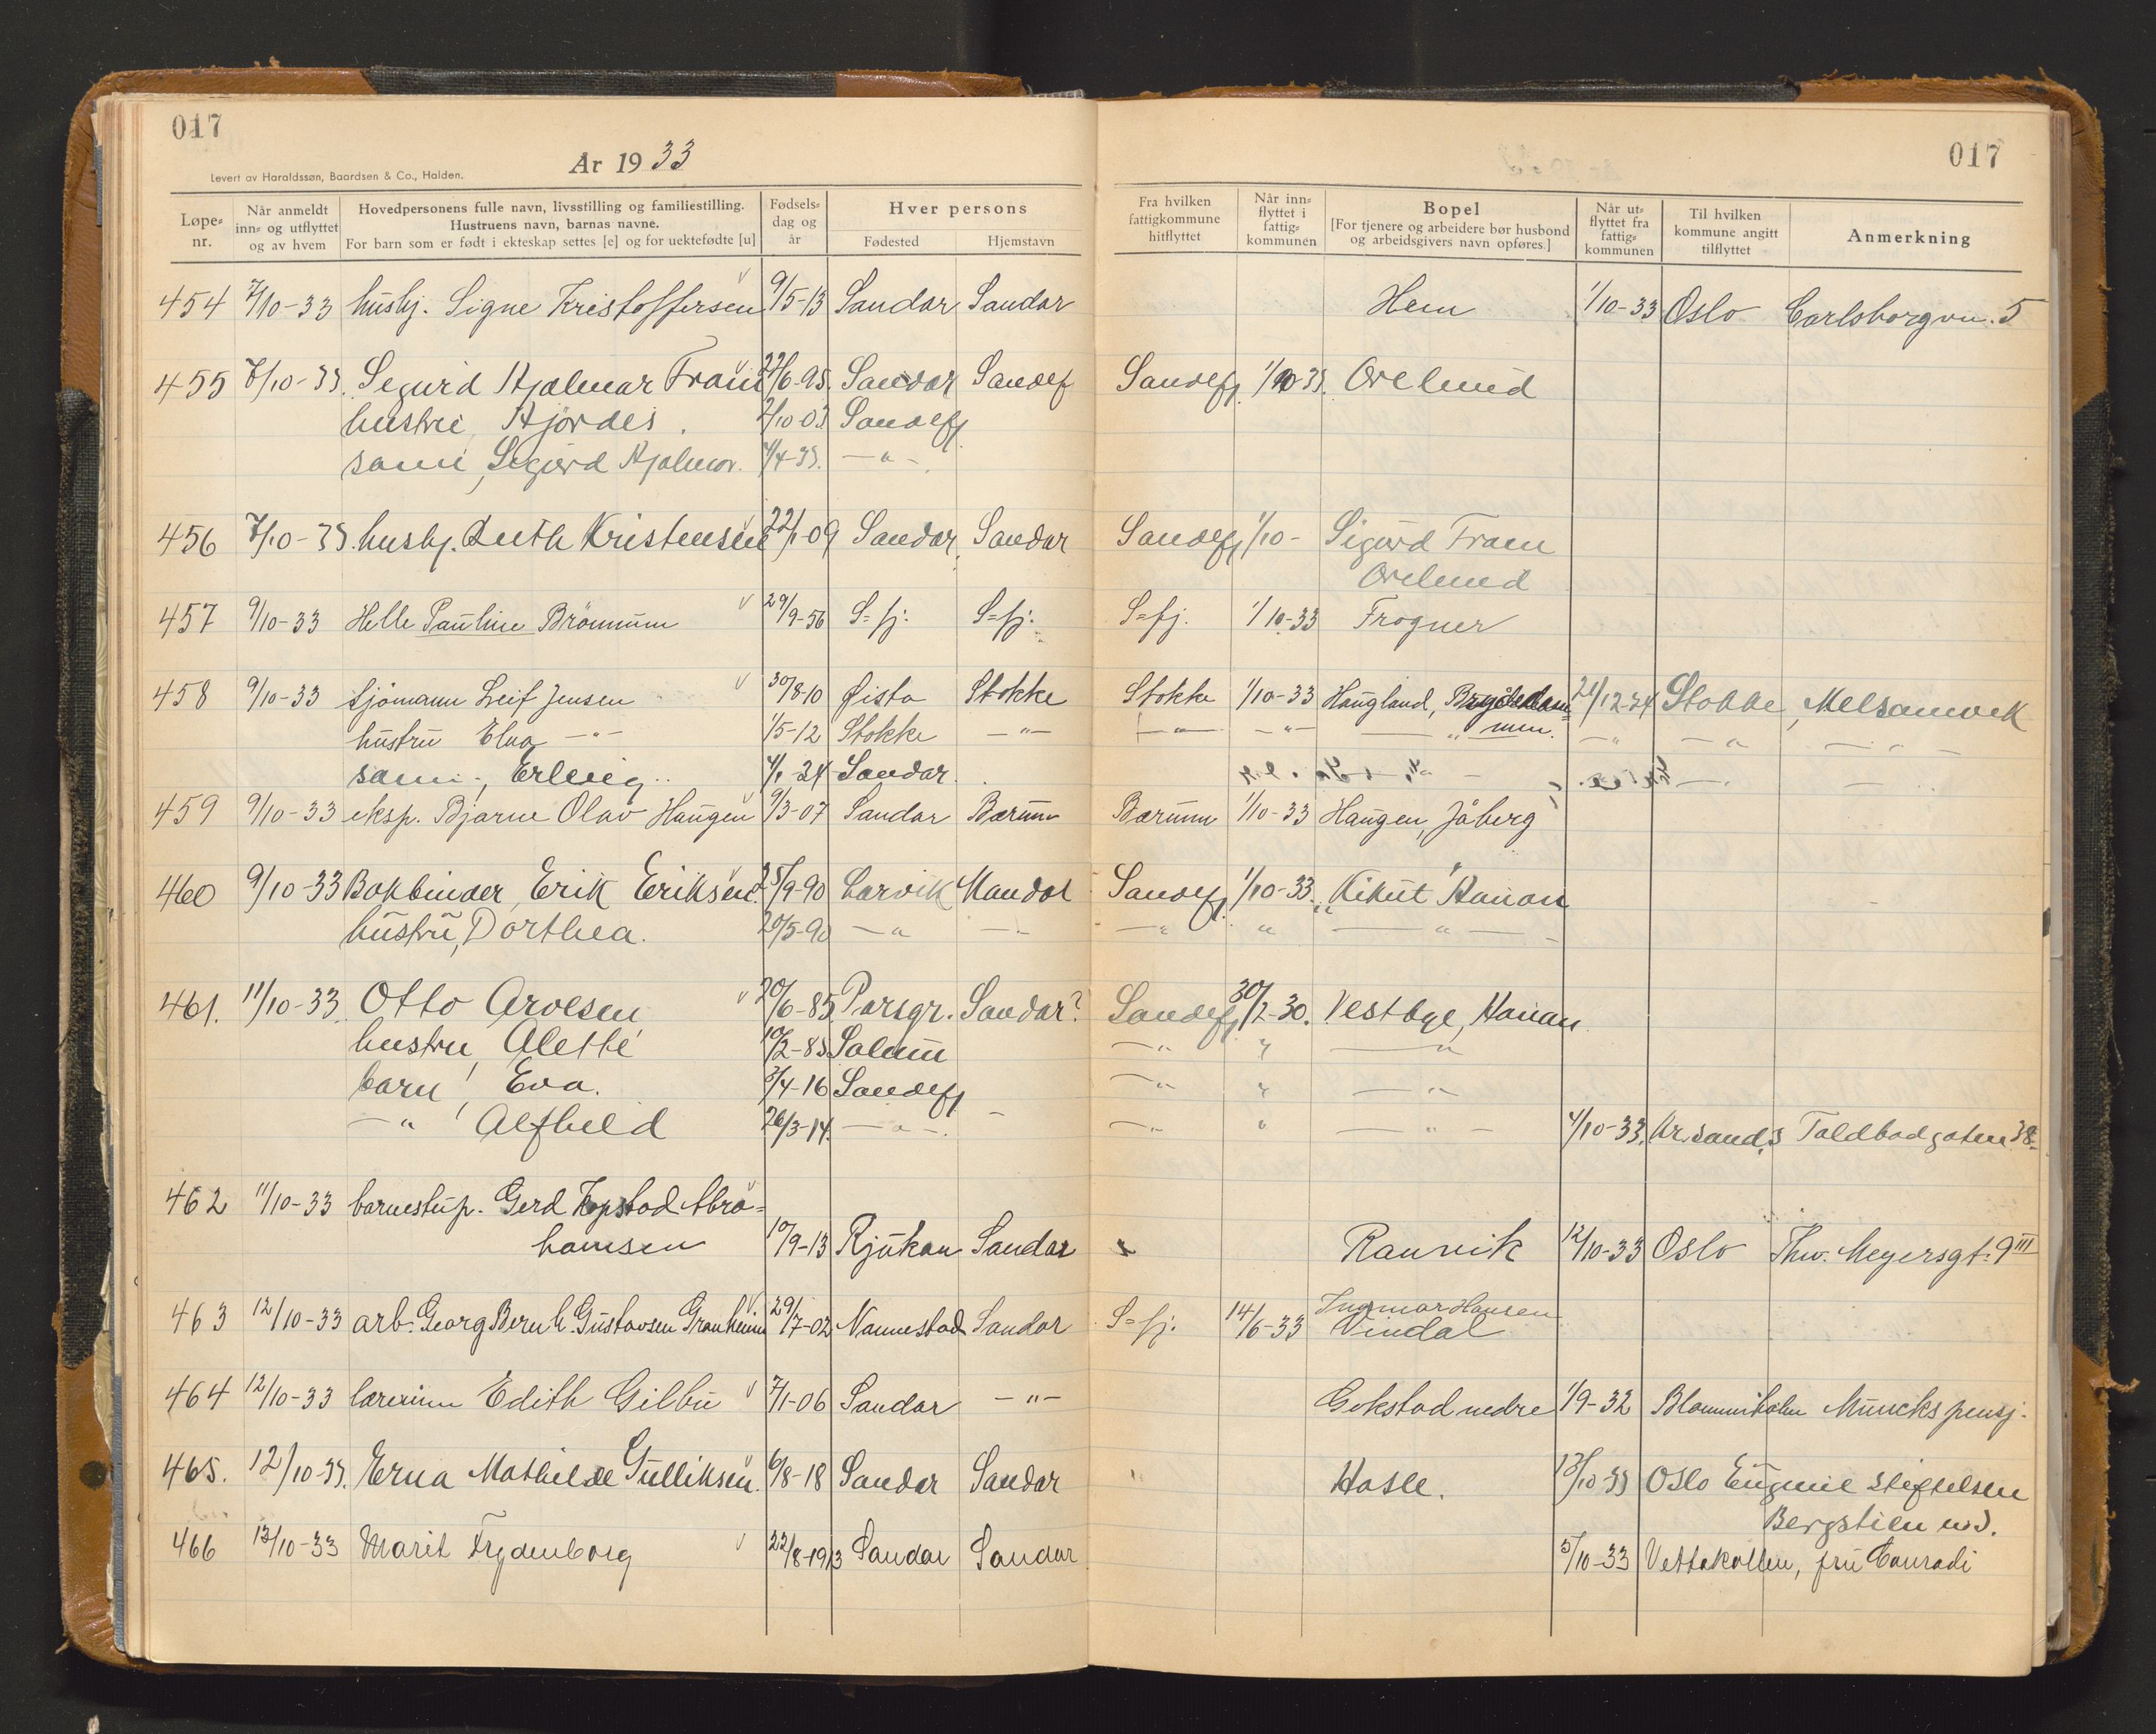 017
År 1933
Levert av Haraldssøn, Baardsen & Co., Halden.
Løpe-nr.
Når anmeldt inn- og utflyttet og av hvem
Hovedpersonens fulle navn, livsstilling og familiestilling.
Hustruens navn, barnas navne.
For barn som er født i ekteskap settes [e] og for uektefødte [u]
Fødsels-dag og år
Hver persons
Fødested
Hjemstavn
017
Fra hvilken fattigkommune hitflyttet
Når inn-flyttet i fattig-kommunen
Bopel
[For tjenere og arbeidere bør husbond og arbeidsgivers navn opføres.]
Når ut-flyttet fra fattig-kommunen
Til hvilken kommune angitt tilflyttet
Anmerkning
454 7/10-33 hushj. Signe Kristoffersen 9/5-13 Sandar Sandar Hem 1/10-33 Oslo Carlsborgvn. 5
455 7/10-33. Sigurd Hjalmar Fram 22/6-95. Sandar Sandef Sandefj. 1/10-33. Orelund
hustru, Hjørdis. 2/10-03 Sandefj
sønn, Sigurd Hjalmar. 4/4-33. —"—
456 7/10-33. hushj. Ruth Kristensen 22/1-09 Sandar Sandar Sandefj 1/10- Sigurd Fram
Orelund
457 9/10-33 Helle Pauline Brønnum 29/9-56 S=fj: S=fj: S=fj. 1/10-33 Frogner
458 9/10-33 sjømann Leif Jensen 30/8-10 Øista Stokke Stokke 1/10-33 Haugland, 21/12-34 Stokke, Melsomvik
hustru Elna —"— 1/5-12 Stokke —"— —"— —"— —"— —"— —"— —"—
sønn, Erling 4/1-34 Sandar
459 9/10-33 eksp. Bjarne Olav Haugen 9/3-07 Sandar Bærum Bærum 1/10-33 Haugen, Jåberg
460 9/10-33 Bokbinder, Erik Eriksen 25/9-90 Larvik Mandal Sandefj 1/10-33. "Kikut" Hauan
hustru, Dorthea. 20/5-90 —"— —"— —"— " —"—
461. 11/10-33. Otto Arvesen 20/6-85 Porsgr. Sandar? Sandefj 30/12-30. Vestbye, Hauan
hustru, Alette 10/2-85 Solum —"— " —"—
barn, Eva. 3/4-16 Sandefj —"— " —"—
—"—, Alfhild 26/3-14. —"—. —"— " —"— 4/10-33. Kr.sand, S Toldbodgaten 38.
462 11/10-33 barnestup. Gerd Kopstad Abra=
hamsen 10/9-13 Rjukan Sandar Ranvik 12/10-33 Oslo Thv. Meyersgt. 9 III
463 12/10-33 arb. Georg Bernh. Gustavsen Granheim 29/7-02 Nannestad Sandar S=fj. 14/6-33 Ingmar Hansen
Vindal
464 12/10-33 lærerinn Edith Gilbu 7/1-06 Sandar —"— Gokstad nedre 1/9-32 Blommenholm Muncks pensj.
465. 12/10-33. Erna Mathilde Gulliksen. 6/8-18 Sandar Sandar Hasle. 13/10-33 Oslo Eugenie stiftelsen
Bergstien
466 13/10-33 Marit Frydenborg 22/8-1913 Sandar Sandar 5/10-33 Vettakollen, fru Conradi